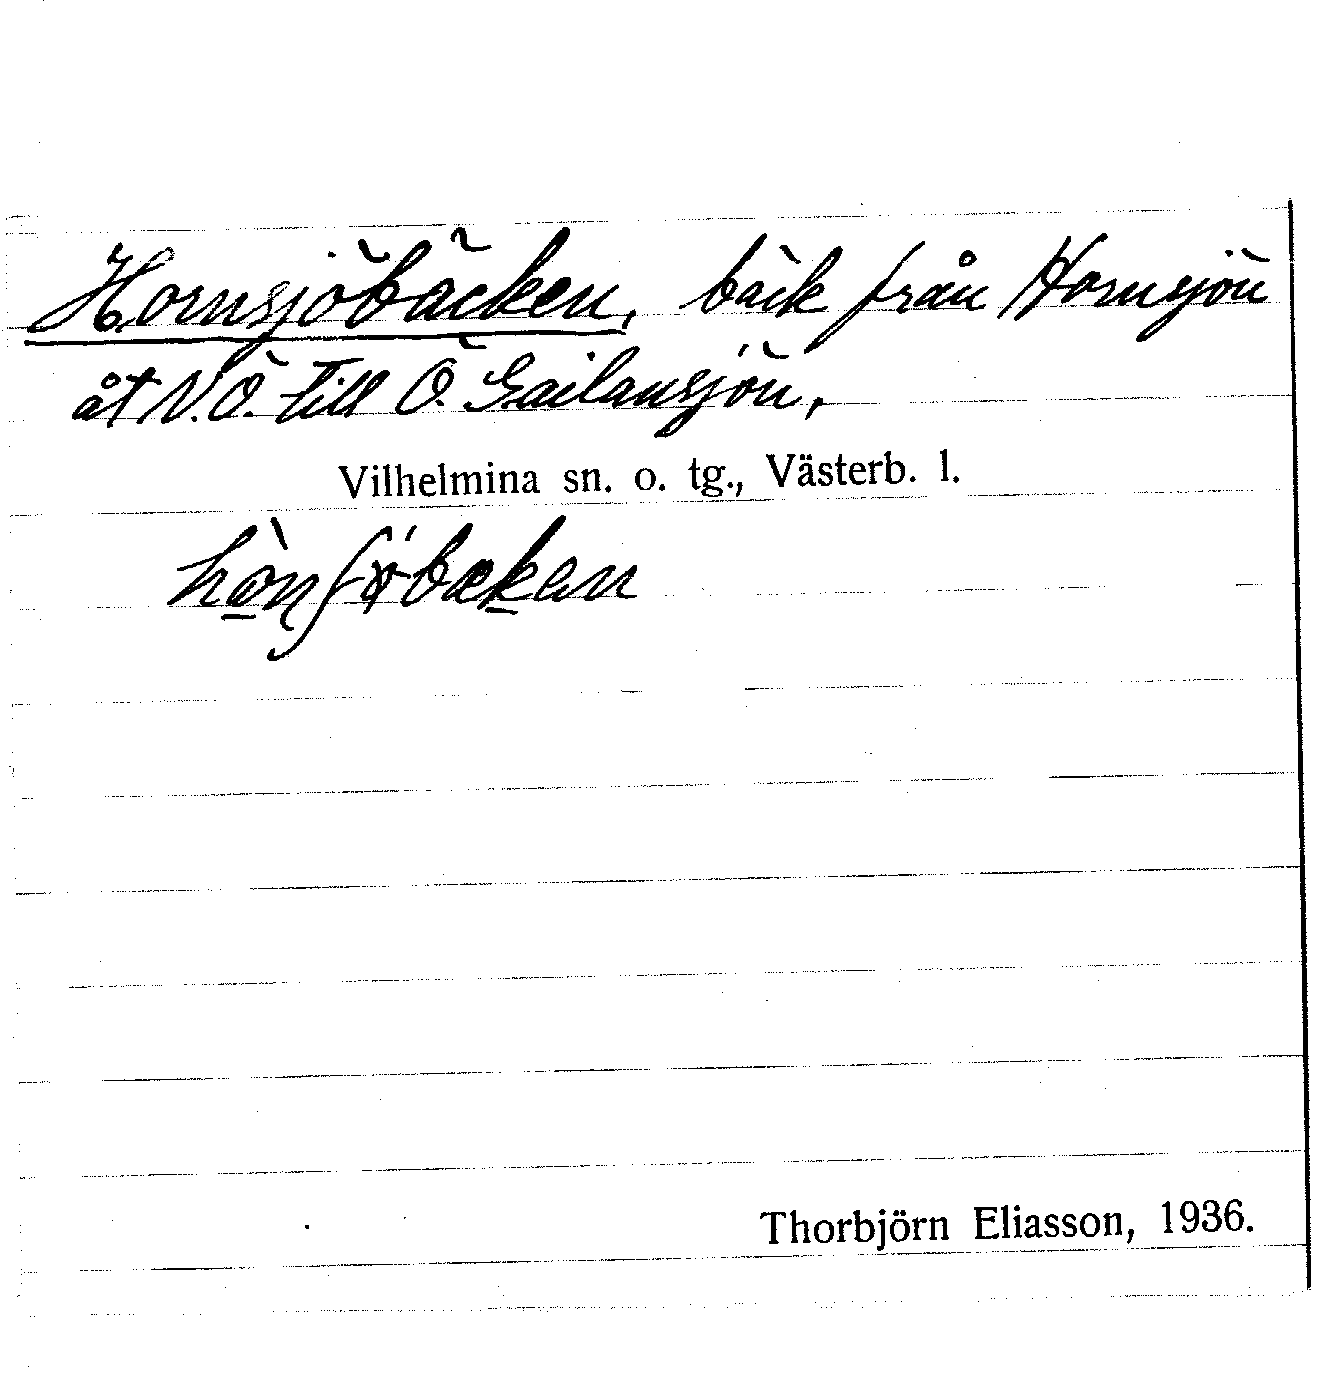 Hornsjöbäcken, bäck från Hornsjön
åt V.Ö. till Ö. Gailansjön,
Vilhelmina sn. o. tg., Västerb. l.
Thorbjörn Eliasson, 1936.